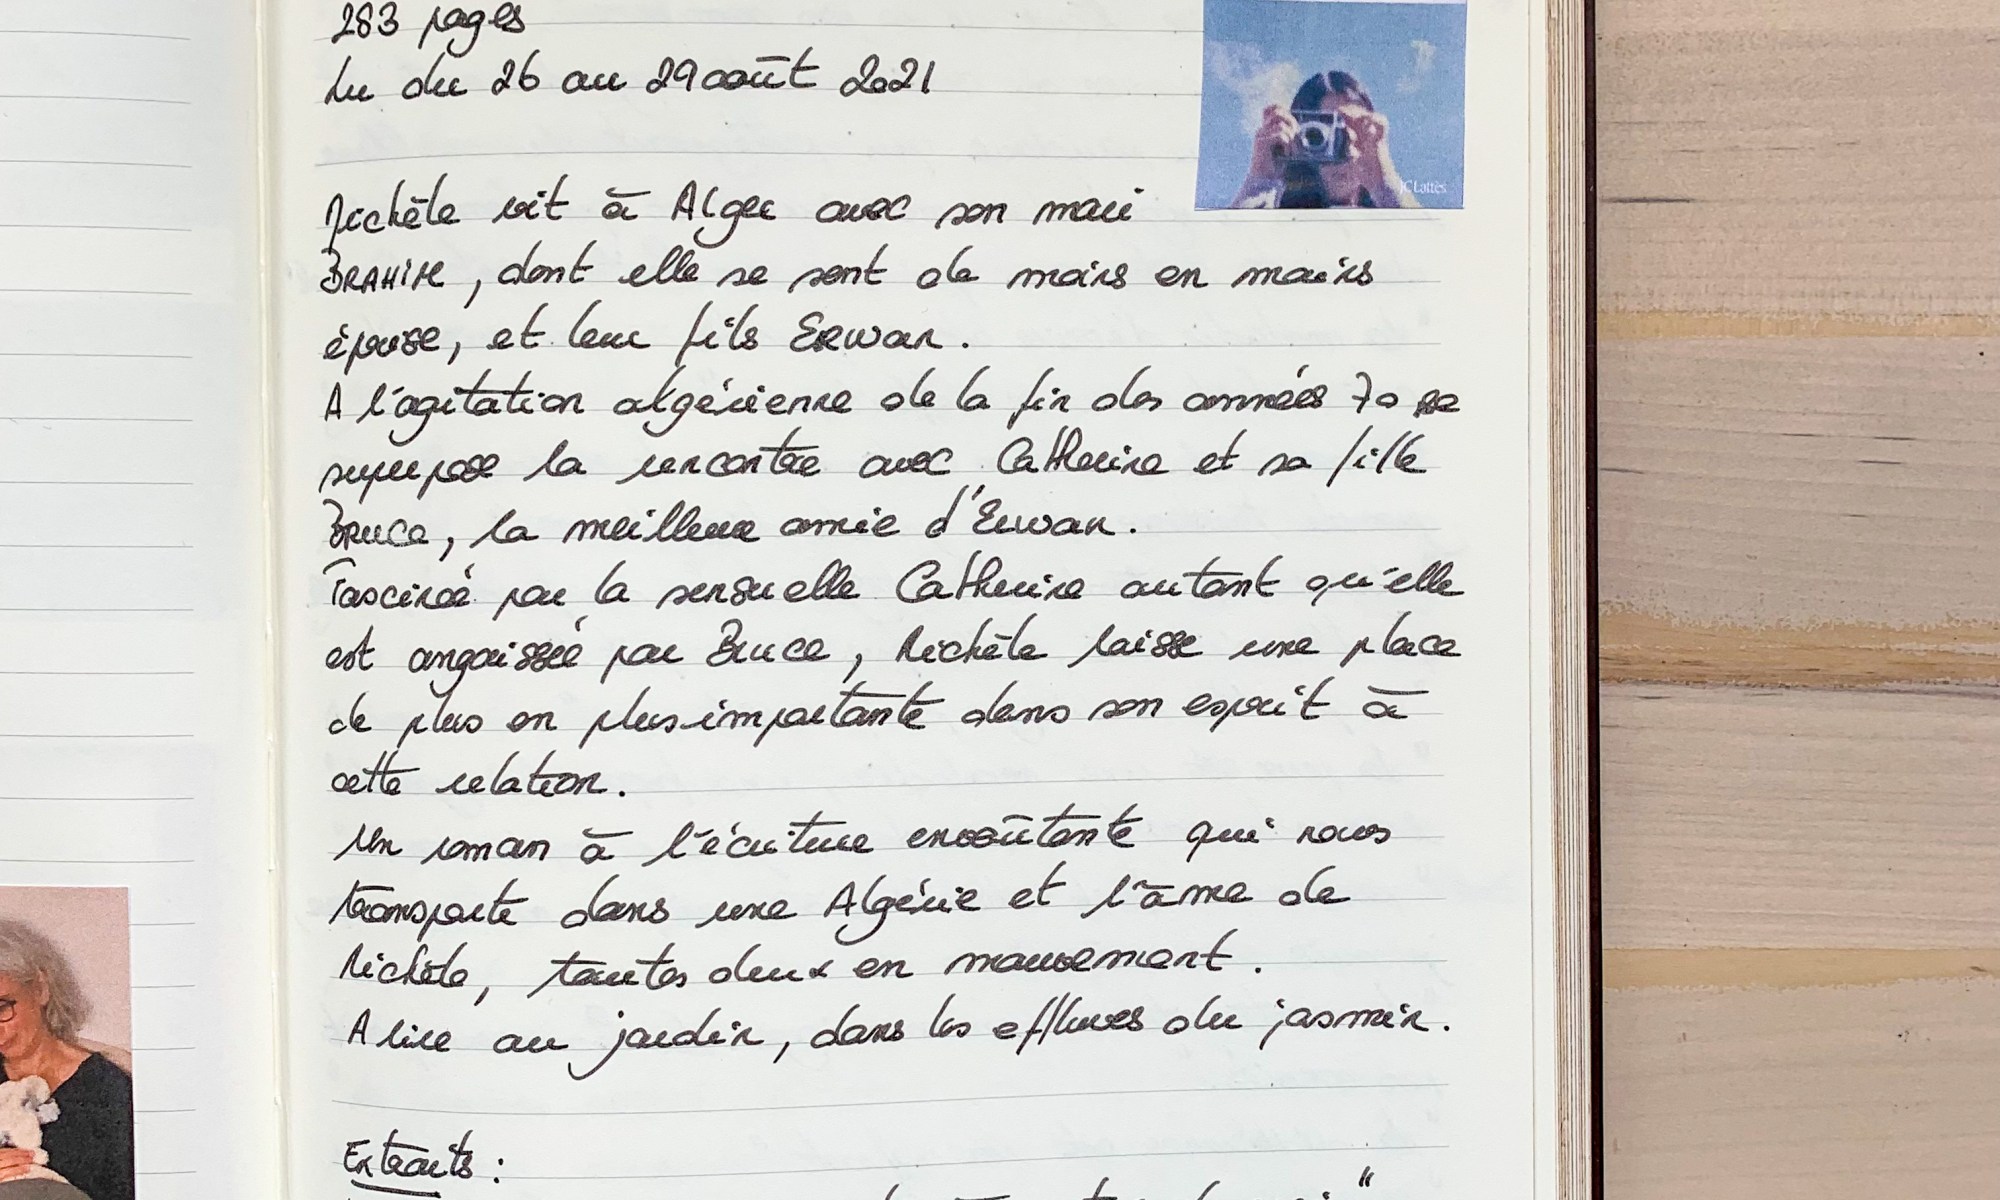 283 pages
Lu du 26 au 29 août 2021
JC Lattès
Michèle vit à Alger avec son mari
BRAHIM, dont elle se sent de moins en moins
éprise, et leur fils Erwan.
A l'agitation algérienne de la fin des années 70 se
superpose la rencontre avec Catherine et sa fille
Bruce, la meilleure amie d'Erwan.
Fascinée par la sensuelle Catherine autant qu'elle
est angoissée par Bruce, Michèle laisse une place
de plus en plus importante dans son esprit à
cette relation.
Un roman à l'écriture envoûtante qui nous
transporte dans une Algérie et l'âme de
Michèle, toutes deux en mouvement.
A lire au jardin, dans les effluves du jasmin.
Extraits :